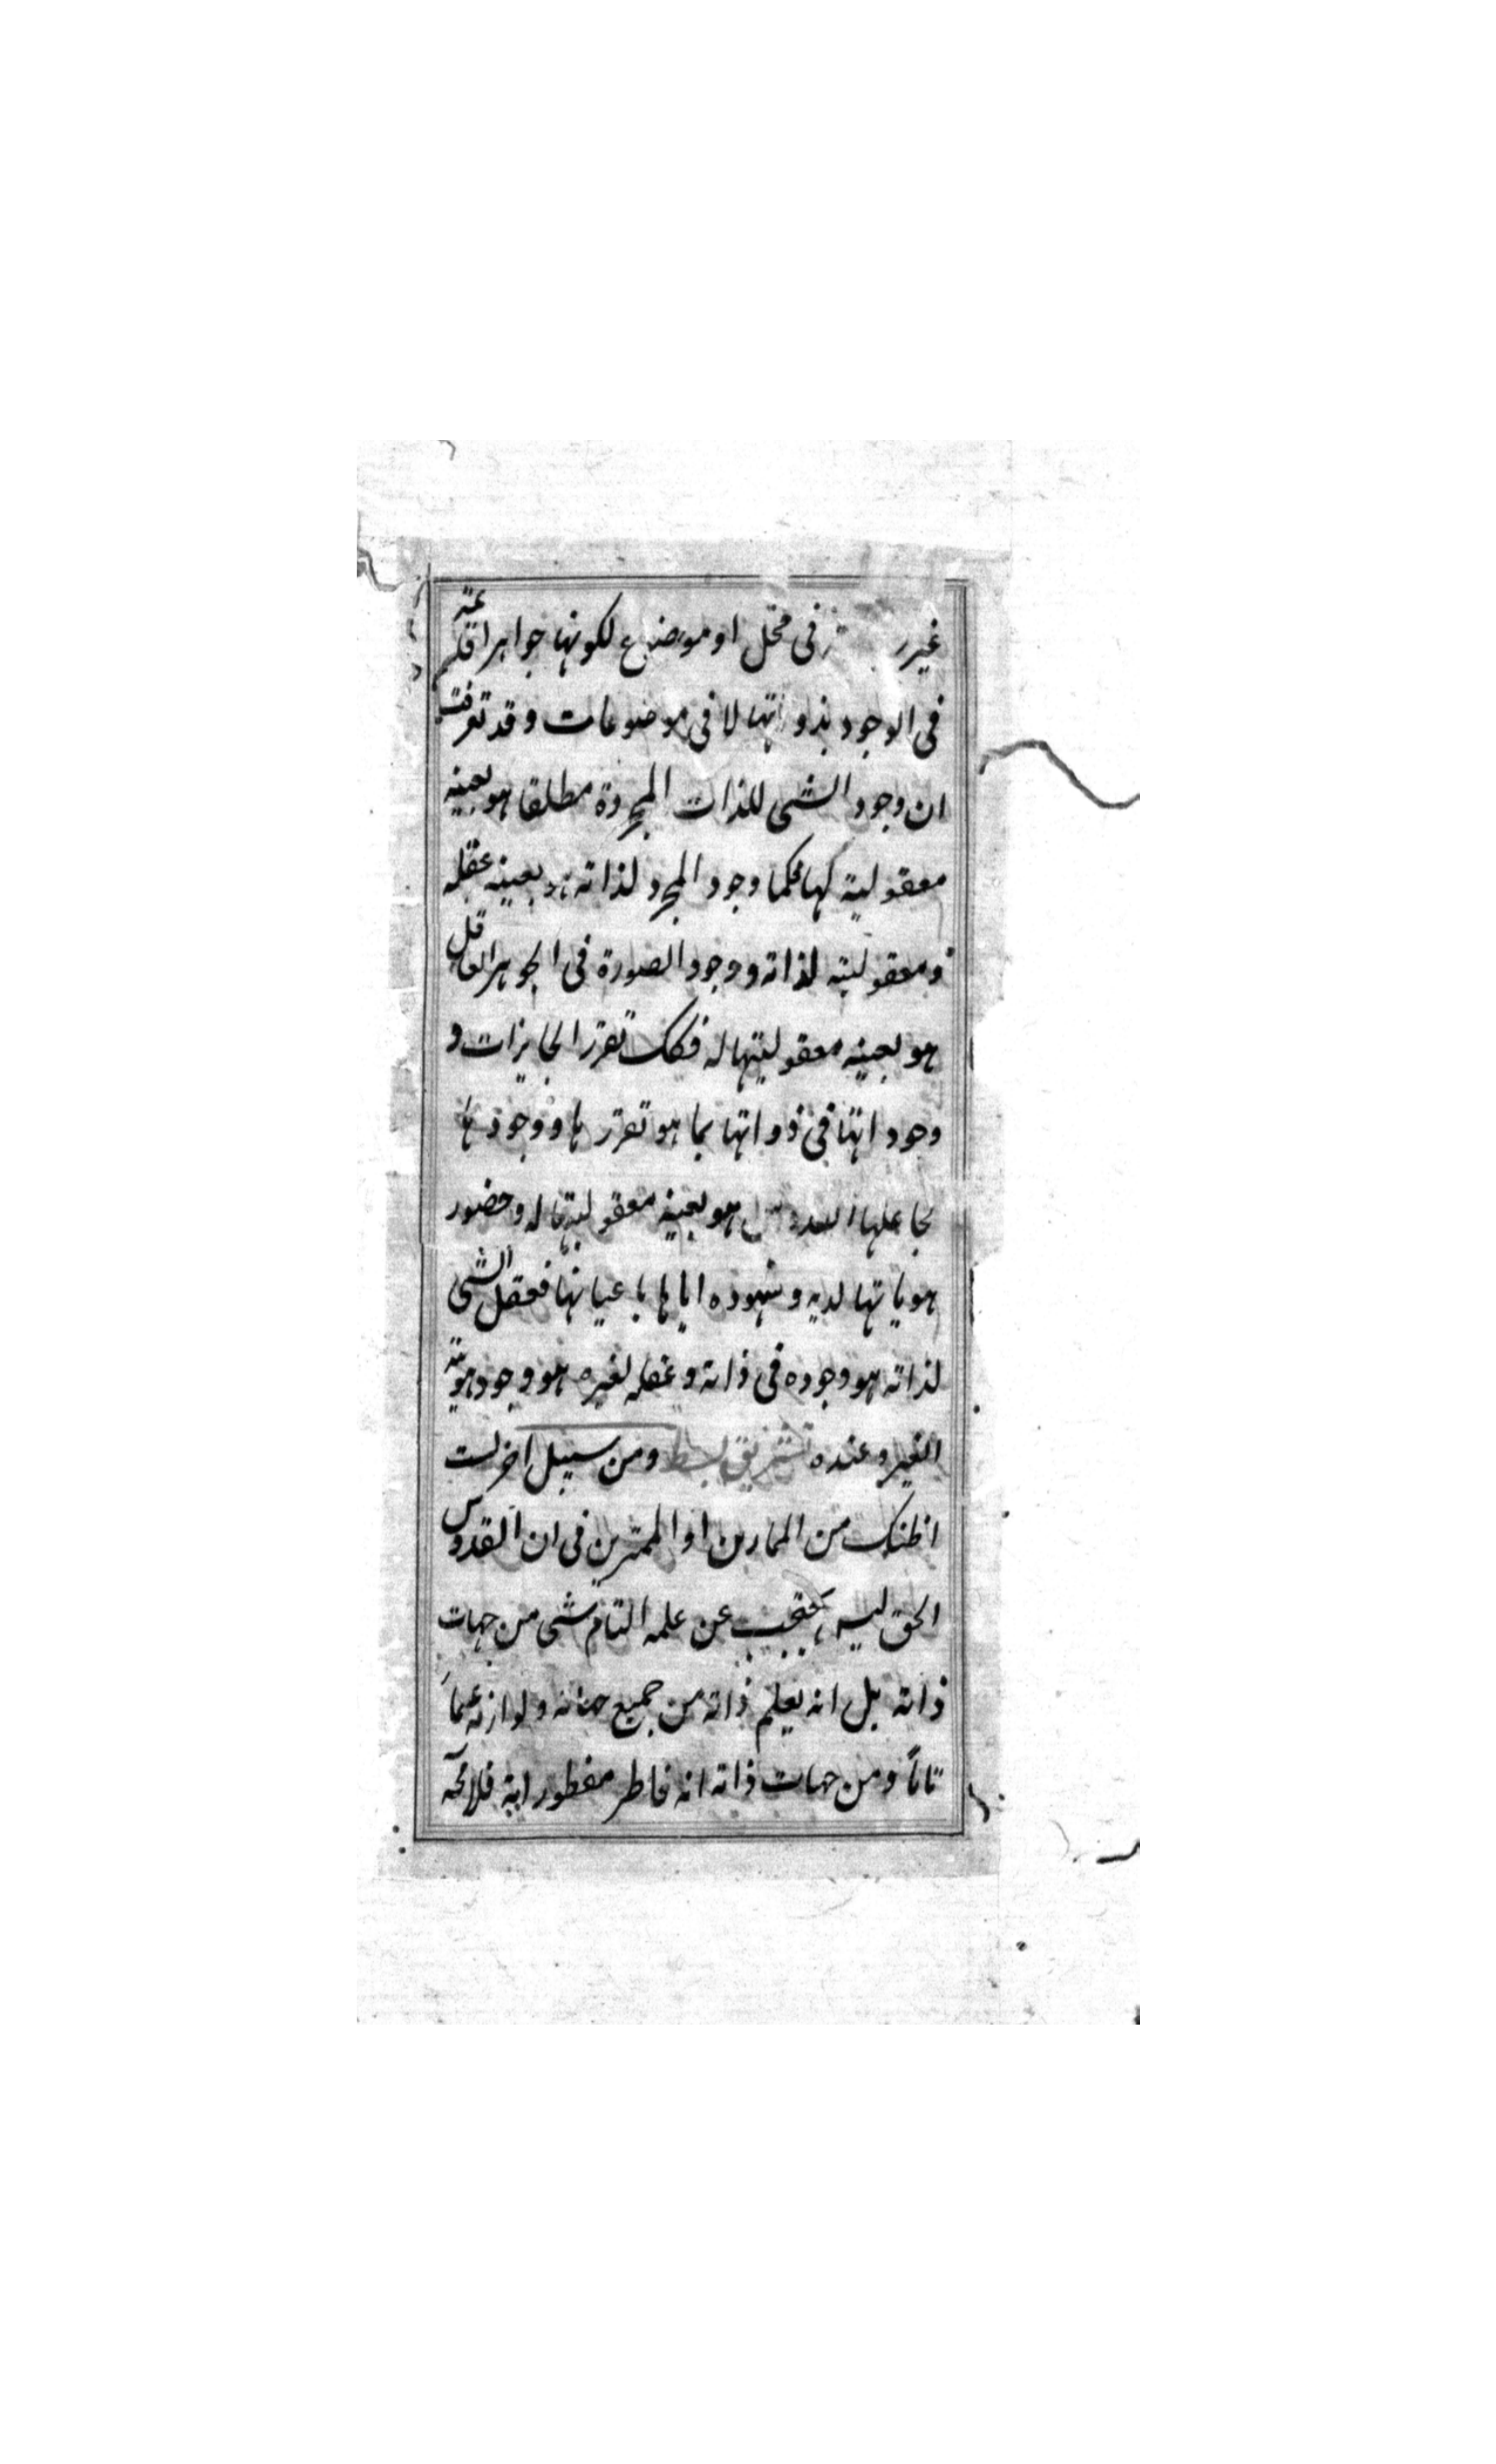 غير في محل او موضوع لكونها جواهرا قائمة
في الوجود بذواتها لا في موضوعات وقد تعرفت
ان وجود الشي للذات المجردة مطلقا هو بعينه
معقوليته لها فكما وجود المجرد لذاته هو بعينه عقله
ومعقوليته لذاته ووجود الصورة في الجوهر العاقل
هو بعينه معقوليتها له فكك تقرر الجايزات و
وجوداتها في ذواتها بما هو تقررها ووجودها
لجاعلها هو بعينه معقوليتها له وحضور
هوياتها لديه وشهوده اياها باعيانها فعقل الشي
لذاته هو وجوده في ذاته وعقله لغيره هو وجود هويته
الغير وعنده تشريق بسط ومن سبيل اخر لست
اظنك من الممارين او الممترين في ان القدوس
الحق ليس يحتجب عن علمه التام شي من جهات
ذاته بل انه يعلم ذاته من جميع جهاته ولوازمه علما
تاما ومن جهات ذاته انه فاطر مفطوراته فلا محة